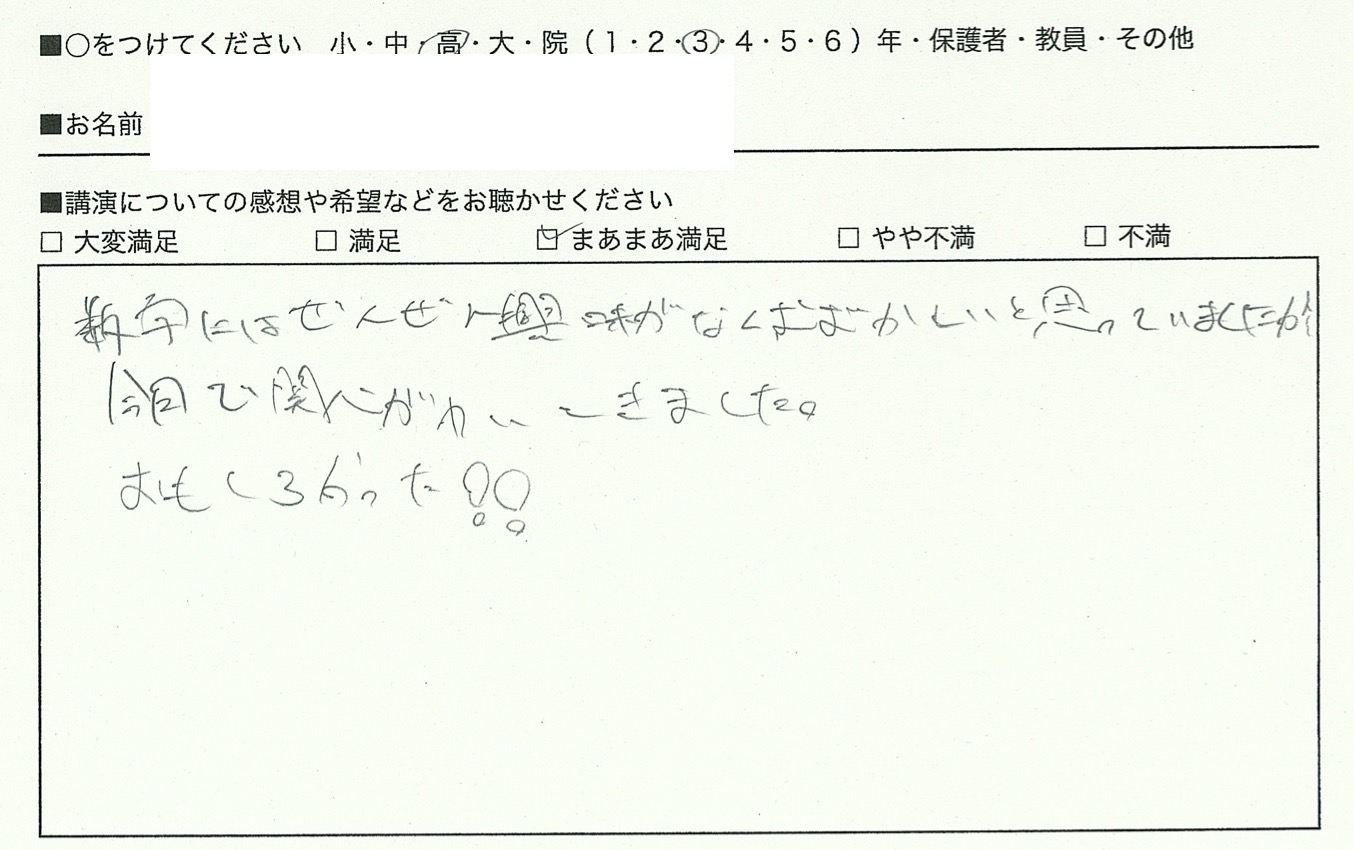 ■○をつけてください 小・中・高・大・院（1・2・3・4・5・6）年・保護者・教員・その他
■お名前
■講演についての感想や希望などをお聴かせください
□ 大変満足 □ 満足 ☑ まあまあ満足 □ やや不満 □ 不満
数学にはぜんぜん興味がなくむずかしいと思っていましたが
今回で関心がわいてきました。
おもしろかった!!